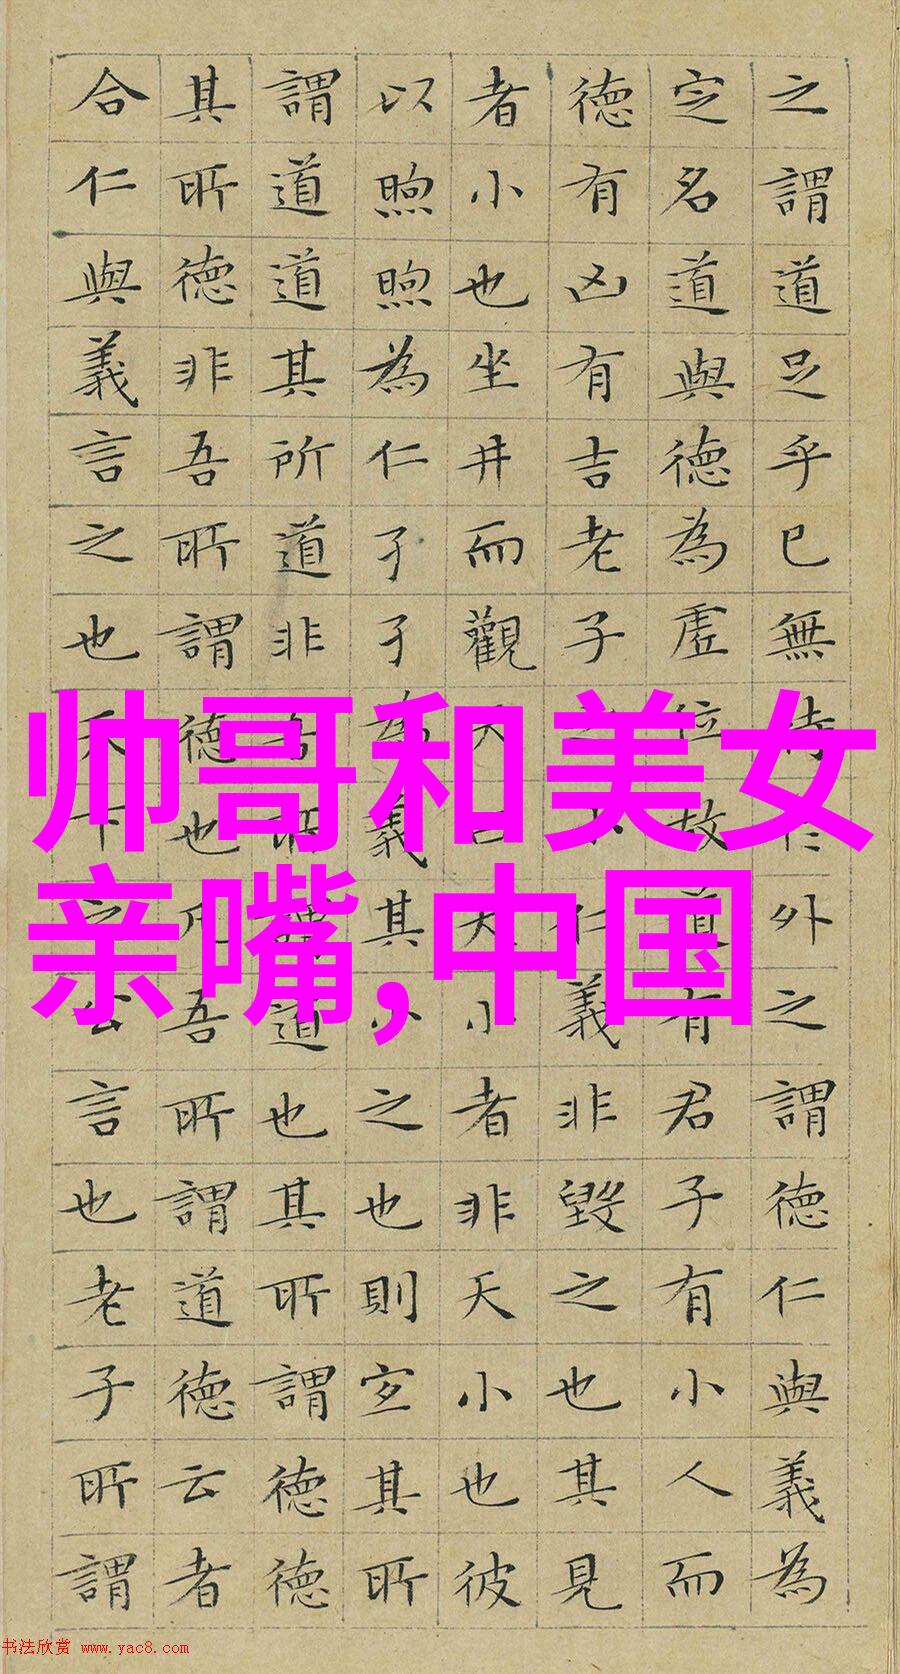 之謂道足乎已無待外之謂德仁與義為
定名道與德為虛位故道有君子有小人而
德有凶有吉老子之小仁義非毀之也其見
者小也坐井而觀天曰天小者非天小也彼
以煦煦為仁孑孑為義其小之也則宜其所
謂道道其所道非吾所謂道也其所謂德德
其所德非吾所謂德也凡吾所謂道德云者
合仁與義言之也天下之公言也老子所謂
帅哥和美女
亲嘴,中国
书法欣赏 www.yac8.com